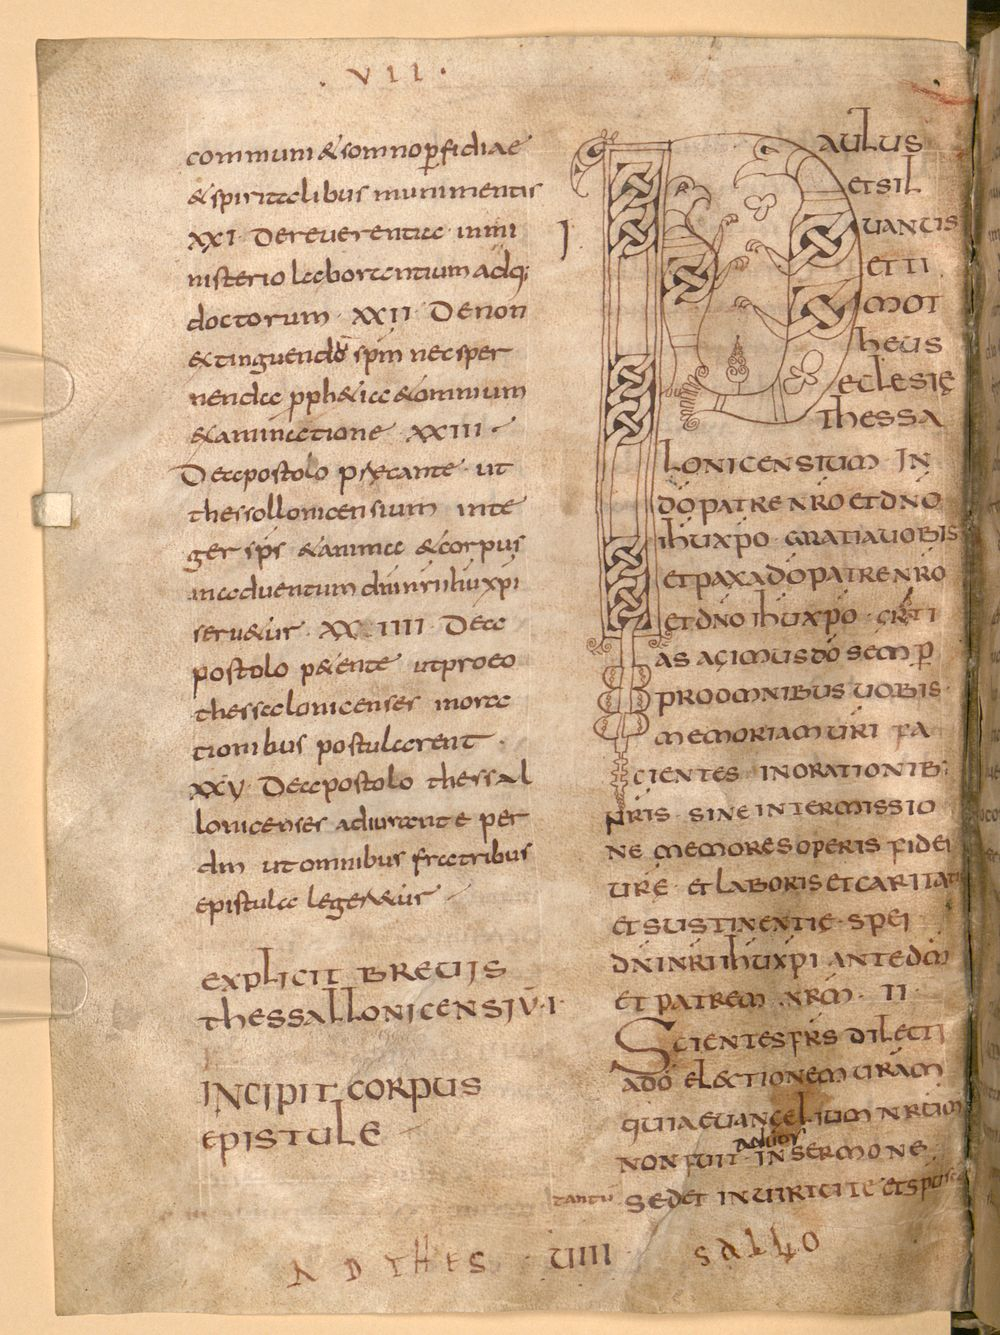 · VII ·
communi & somno p̲fidiae
& spiritalibus munimentis
XXI · De reverentia in mi
nisterio laborantium adq;
doctorum · XXII · De non
extinguendo sp̄m nec sper
nenda p̲ph&ia & omnium
examinatione · XXIII ·
De apostolo p̲cante · ut
thessollonicensium · inte
ger sp̄s & anima & corpus
in adventum dn̄i nr̄i ihū xp̄i
serv&ur · XXIIII · De a
postolo p&ente ut pro eo
thessalonicenses in ora
tionibus postularent ·
XXV · De apostolo thessal
lonicenses adiurante per
dm̄ ut omnibus fratribus
epistula legeretur
EXPLICIT BREVIS
THESSALLONICENSIŪ · I ·
INCIPIT CORPUS
EPISTULE
I
PAULUS
ET SIL
UANUS
ET TI
MOT
HEUS
ECLESIĘ
THESSA
LONICENSIUM IN
DŌ PATRE NR̄O ET DN̄O
IHŪ XP̄O · GRATIA UOBIS
ET PAX A DŌ PATRE NR̄O
ET DN̄O IHŪ XP̄O · GR̄TI
AS AGIMUS DŌ SEMP̲
PRO OMNIBUS UOBIS ·
MEMORIAM UR̄I FA
CIENTES IN ORATIONIB·
NR̄IS · SINE INTERMISSIO
NE MEMORES OPERIS FIDEI
UR̄E · ET LABORIS ET CARITATI
ET SUSTINENTIĘ · SPEI
DN̄I NR̄I IHŪ XP̄I ANTE DM̄
ET PATREM NR̄M · II ·
SCIENTES FR̄S DILECTI
A DŌ ELECTIONEM UR̄AM
QUIA EUANGELIUM NR̄UM
NON FUIT AD UOS IN SERMONE
TANTŪ SED ET IN UIRTUTE ET SPŪ SC̄O
AD THES · UIIII · SALLO